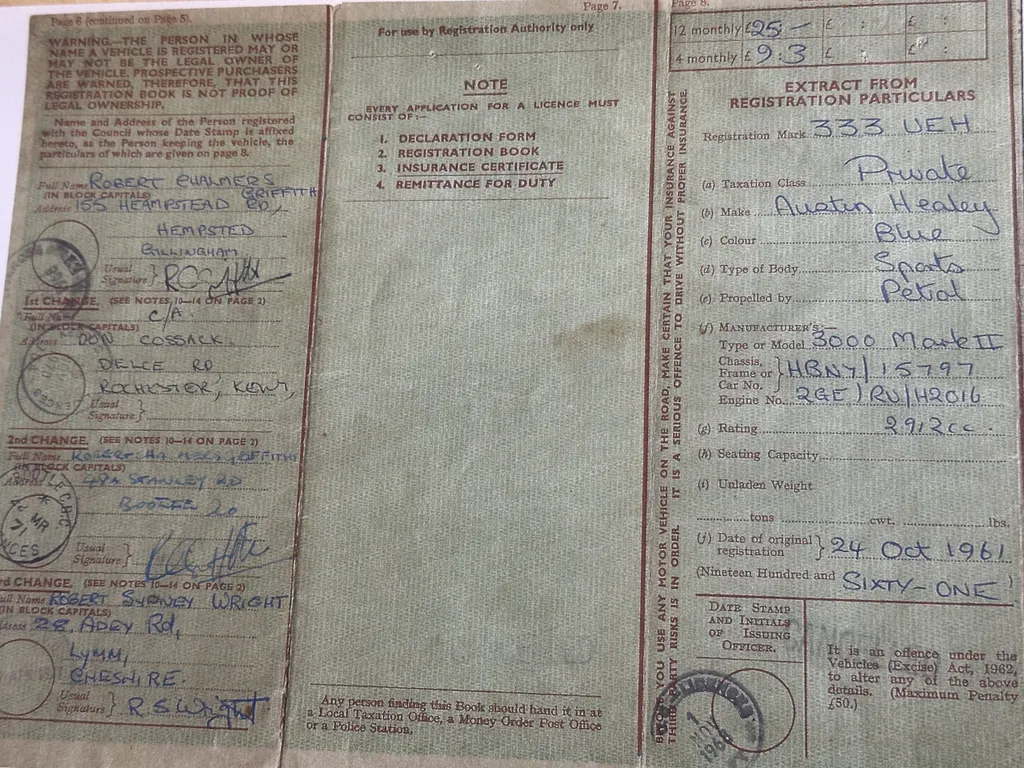 Page 6 (continued on Page 5).
WARNING.—THE PERSON IN WHOSE
NAME A VEHICLE IS REGISTERED MAY OR
MAY NOT BE THE LEGAL OWNER OF
THE VEHICLE. PROSPECTIVE PURCHASERS
ARE WARNED, THEREFORE, THAT THIS
REGISTRATION BOOK IS NOT PROOF OF
LEGAL OWNERSHIP.
Name and Address of the Person registered
with the Council whose Date Stamp is affixed
hereto, as the Person keeping the vehicle, the
particulars of which are given on page 8.
Full Name ROBERT CHALMERS
(IN BLOCK CAPITALS) GRIFFITH
Address 153 HEAMPSTEAD RD,
HEMPSTED
GILLINGHAM
Usual
Signature
1st CHANGE. (SEE NOTES 10—14 ON PAGE 2)
Full Name C/A.
(IN BLOCK CAPITALS)
Address DON COSSACK
DELCE RD
ROCHESTER, KENT,
Usual
Signature
2nd CHANGE. (SEE NOTES 10—14 ON PAGE 2)
Full Name ROBERT GRIFFITH
(IN BLOCK CAPITALS)
Address STANLEY RD
BOOTLE 20
Usual
Signature
3rd CHANGE. (SEE NOTES 10—14 ON PAGE 2)
Full Name ROBERT SYDNEY WRIGHT
(IN BLOCK CAPITALS)
Address 28, ADEY Rd,
LYMM,
CHESHIRE.
Usual
Signature R.S Wright
Page 7.
For use by Registration Authority only
NOTE
EVERY APPLICATION FOR A LICENCE MUST
CONSIST OF:—
1. DECLARATION FORM
2. REGISTRATION BOOK
3. INSURANCE CERTIFICATE
4. REMITTANCE FOR DUTY
Any person finding this Book should hand it in at
a Local Taxation Office, a Money Order Post Office
or a Police Station.
BEFORE YOU USE ANY MOTOR VEHICLE ON THE ROAD, MAKE CERTAIN THAT YOUR INSURANCE AGAINST
THIRD PARTY RISKS IS IN ORDER. IT IS A SERIOUS OFFENCE TO DRIVE WITHOUT PROPER INSURANCE.
Page 8.
12 monthly £25 — £ : £ :
4 monthly £9:3 £ : £ :
EXTRACT FROM
REGISTRATION PARTICULARS
Registration Mark 333 UEH
(a) Taxation Class Private
(b) Make Austin Healey
(c) Colour Blue
(d) Type of Body Sports
(e) Propelled by Petrol
(f) MANUFACTURER'S:—
Type or Model 3000 Mark II
Chassis,
Frame or
Car No. HBN7/15797
Engine No. 29E/RU/H2016
(g) Rating 2912cc.
(h) Seating Capacity
(i) Unladen Weight
tons cwt. lbs.
(j) Date of original
registration 24 Oct 1961
(Nineteen Hundred and SIXTY-ONE)
DATE STAMP
AND INITIALS
OF ISSUING
OFFICER.
It is an offence under the
Vehicles (Excise) Act, 1962,
to alter any of the above
details. (Maximum Penalty
£50.)